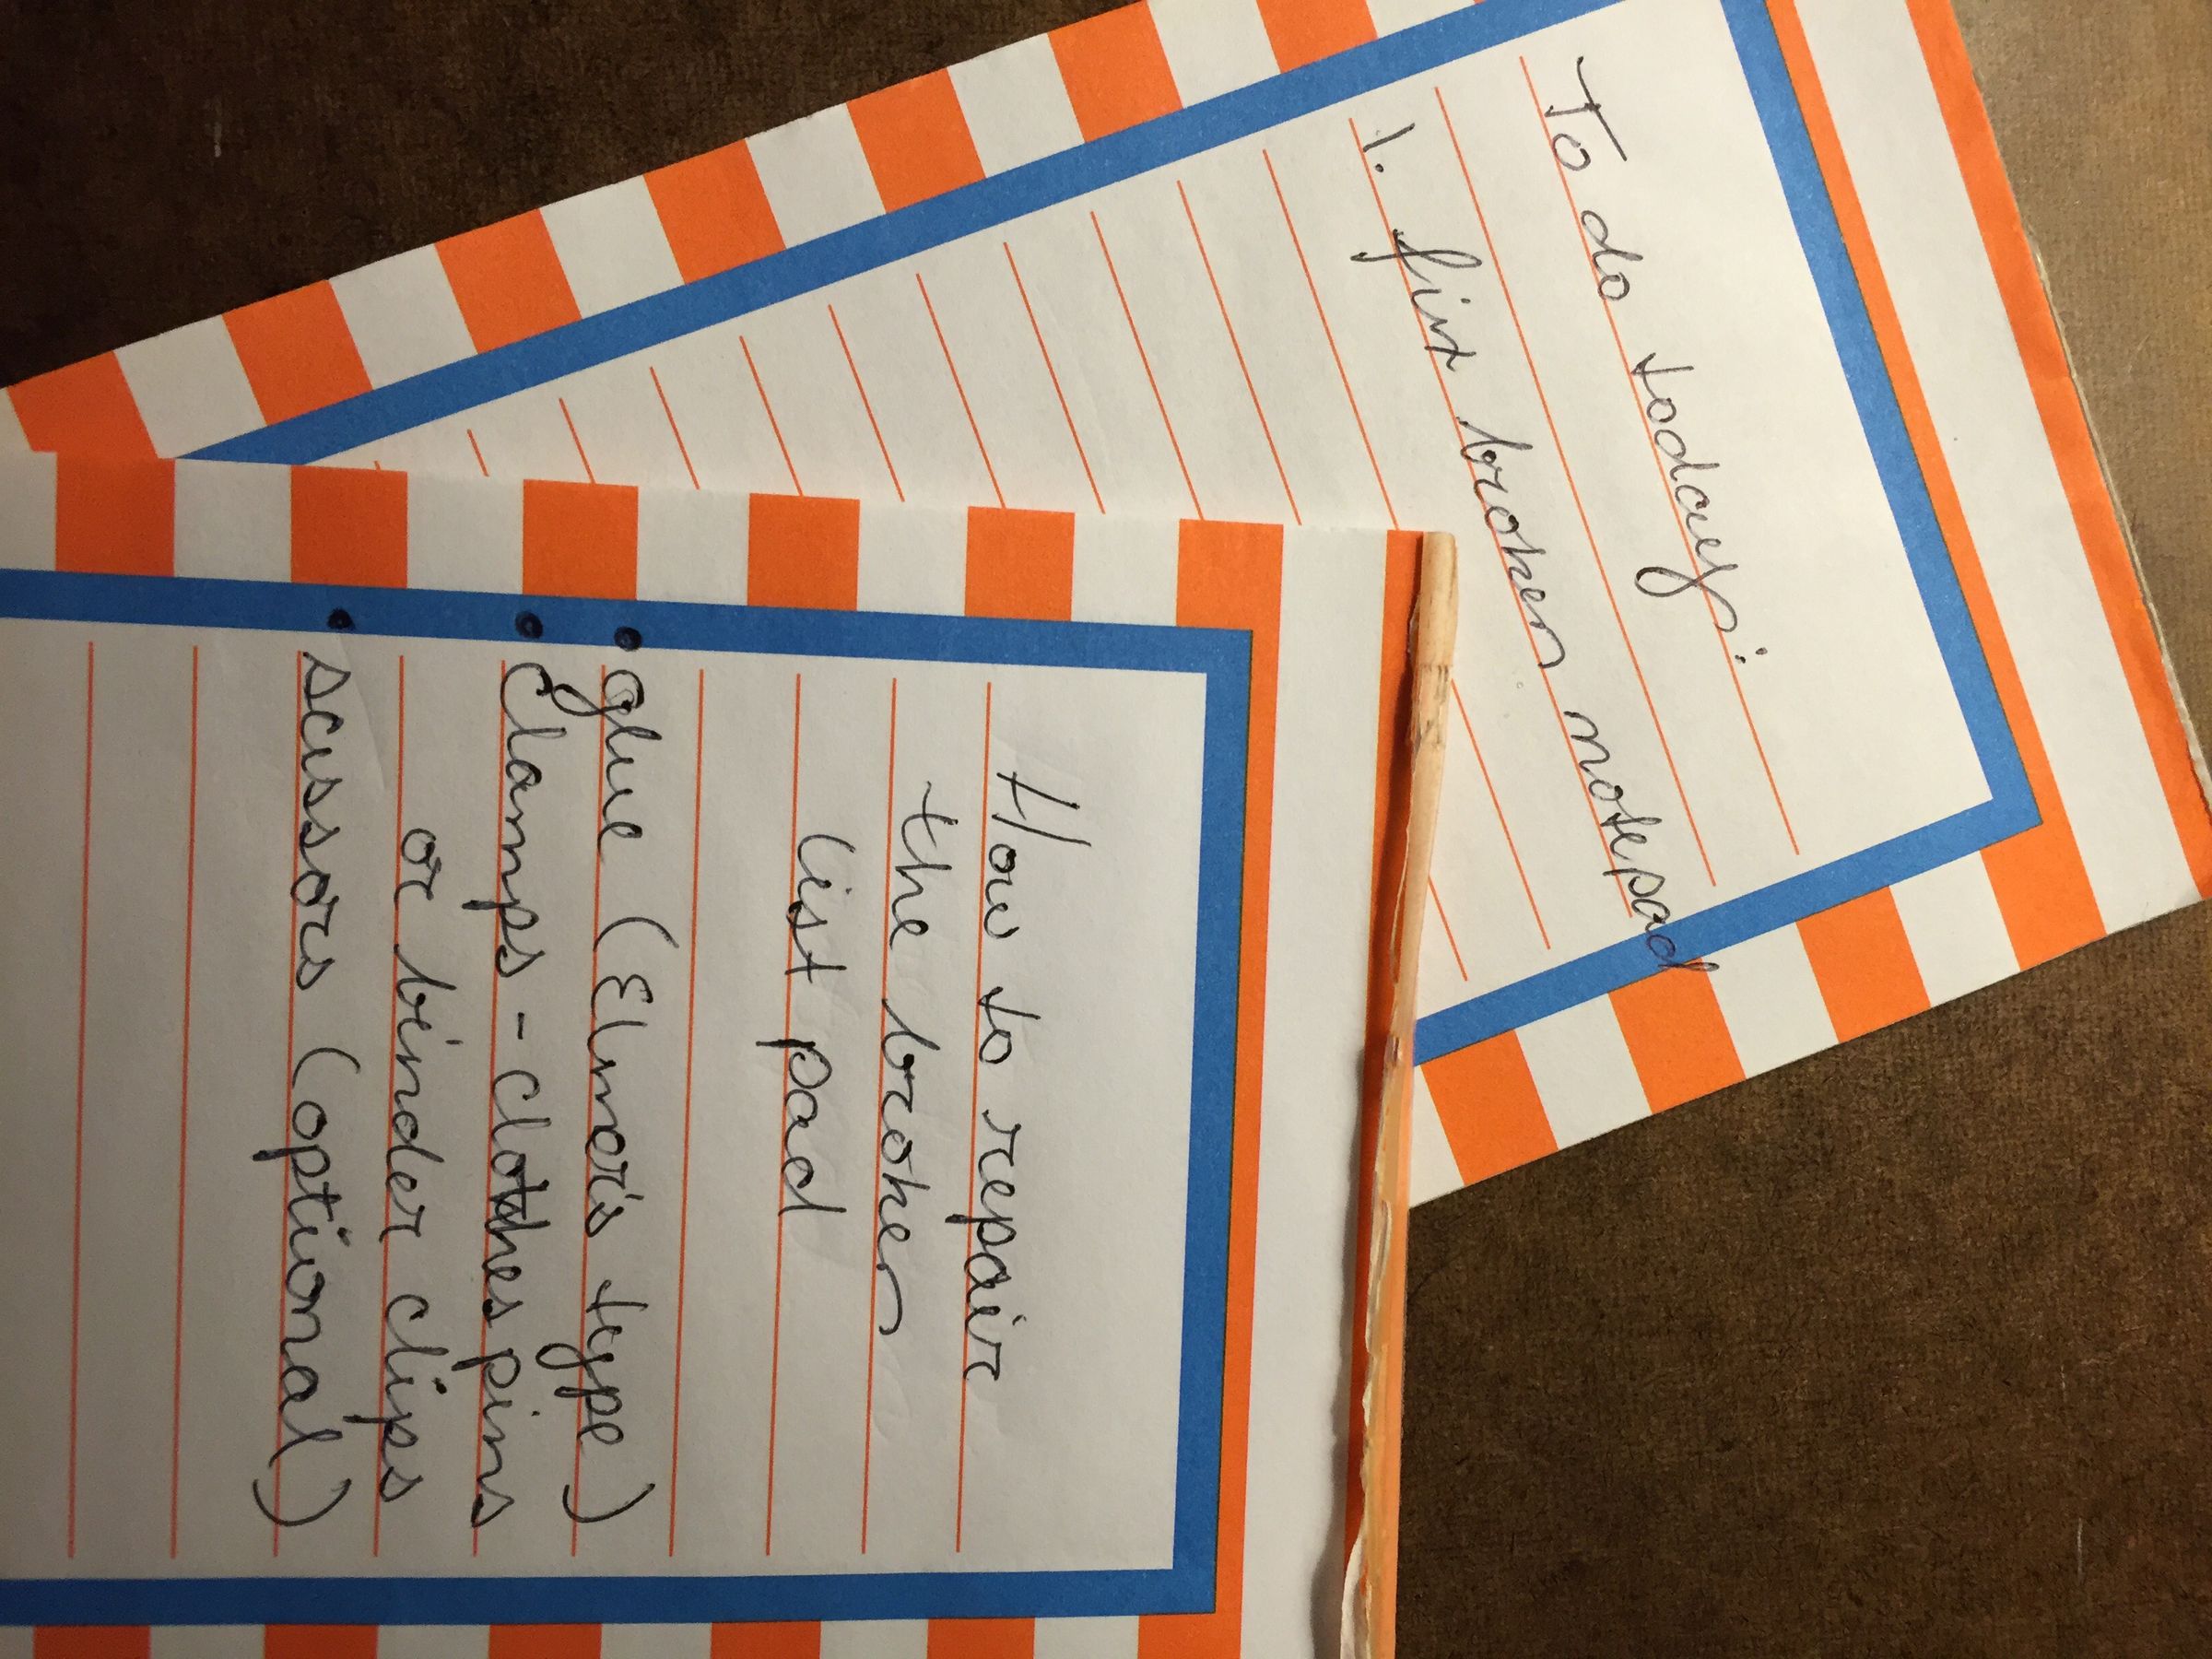 To do today:
1. fix broken notepad
How to repair
the broken
list pad
• glue (Elmer's type)
• clamps - clothespins
or binder clips
• scissors (optional)